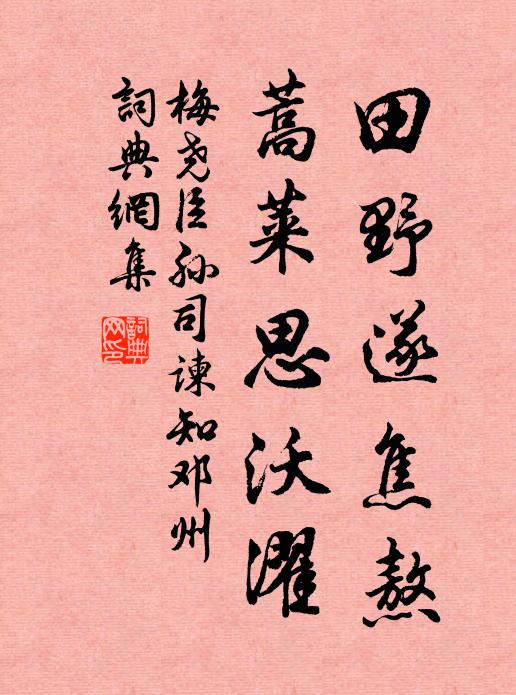 田野遂焦熬
蒿莱思沃濯
梅尧臣孙司谏知邓州
詞典網集
詞典网印